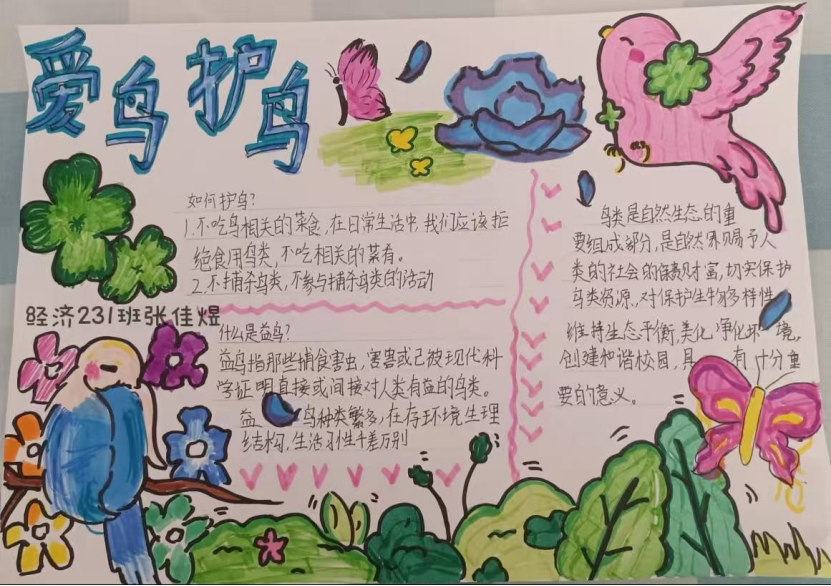 爱鸟护鸟
如何护鸟?
1.不吃鸟相关的菜食,在日常生活中,我们应该拒
绝食用鸟类,不吃相关的菜肴。
2.不捕杀鸟类,不参与捕杀鸟类的活动
经济231班张佳煜
什么是益鸟?
益鸟指那些捕食害虫,害兽或已被现代科
学证明直接或间接对人类有益的鸟类。
益鸟种类繁多,在存环境生理
结构,生活习性千差万别
鸟类是自然生态的重
要组成部分,是自然界赐予人
类的社会的保财富,切实保护
鸟类资源,对保护生物多样性
维持生态平衡,美化,净化环境,
创建和谐校园,具有十分重
要的意义。